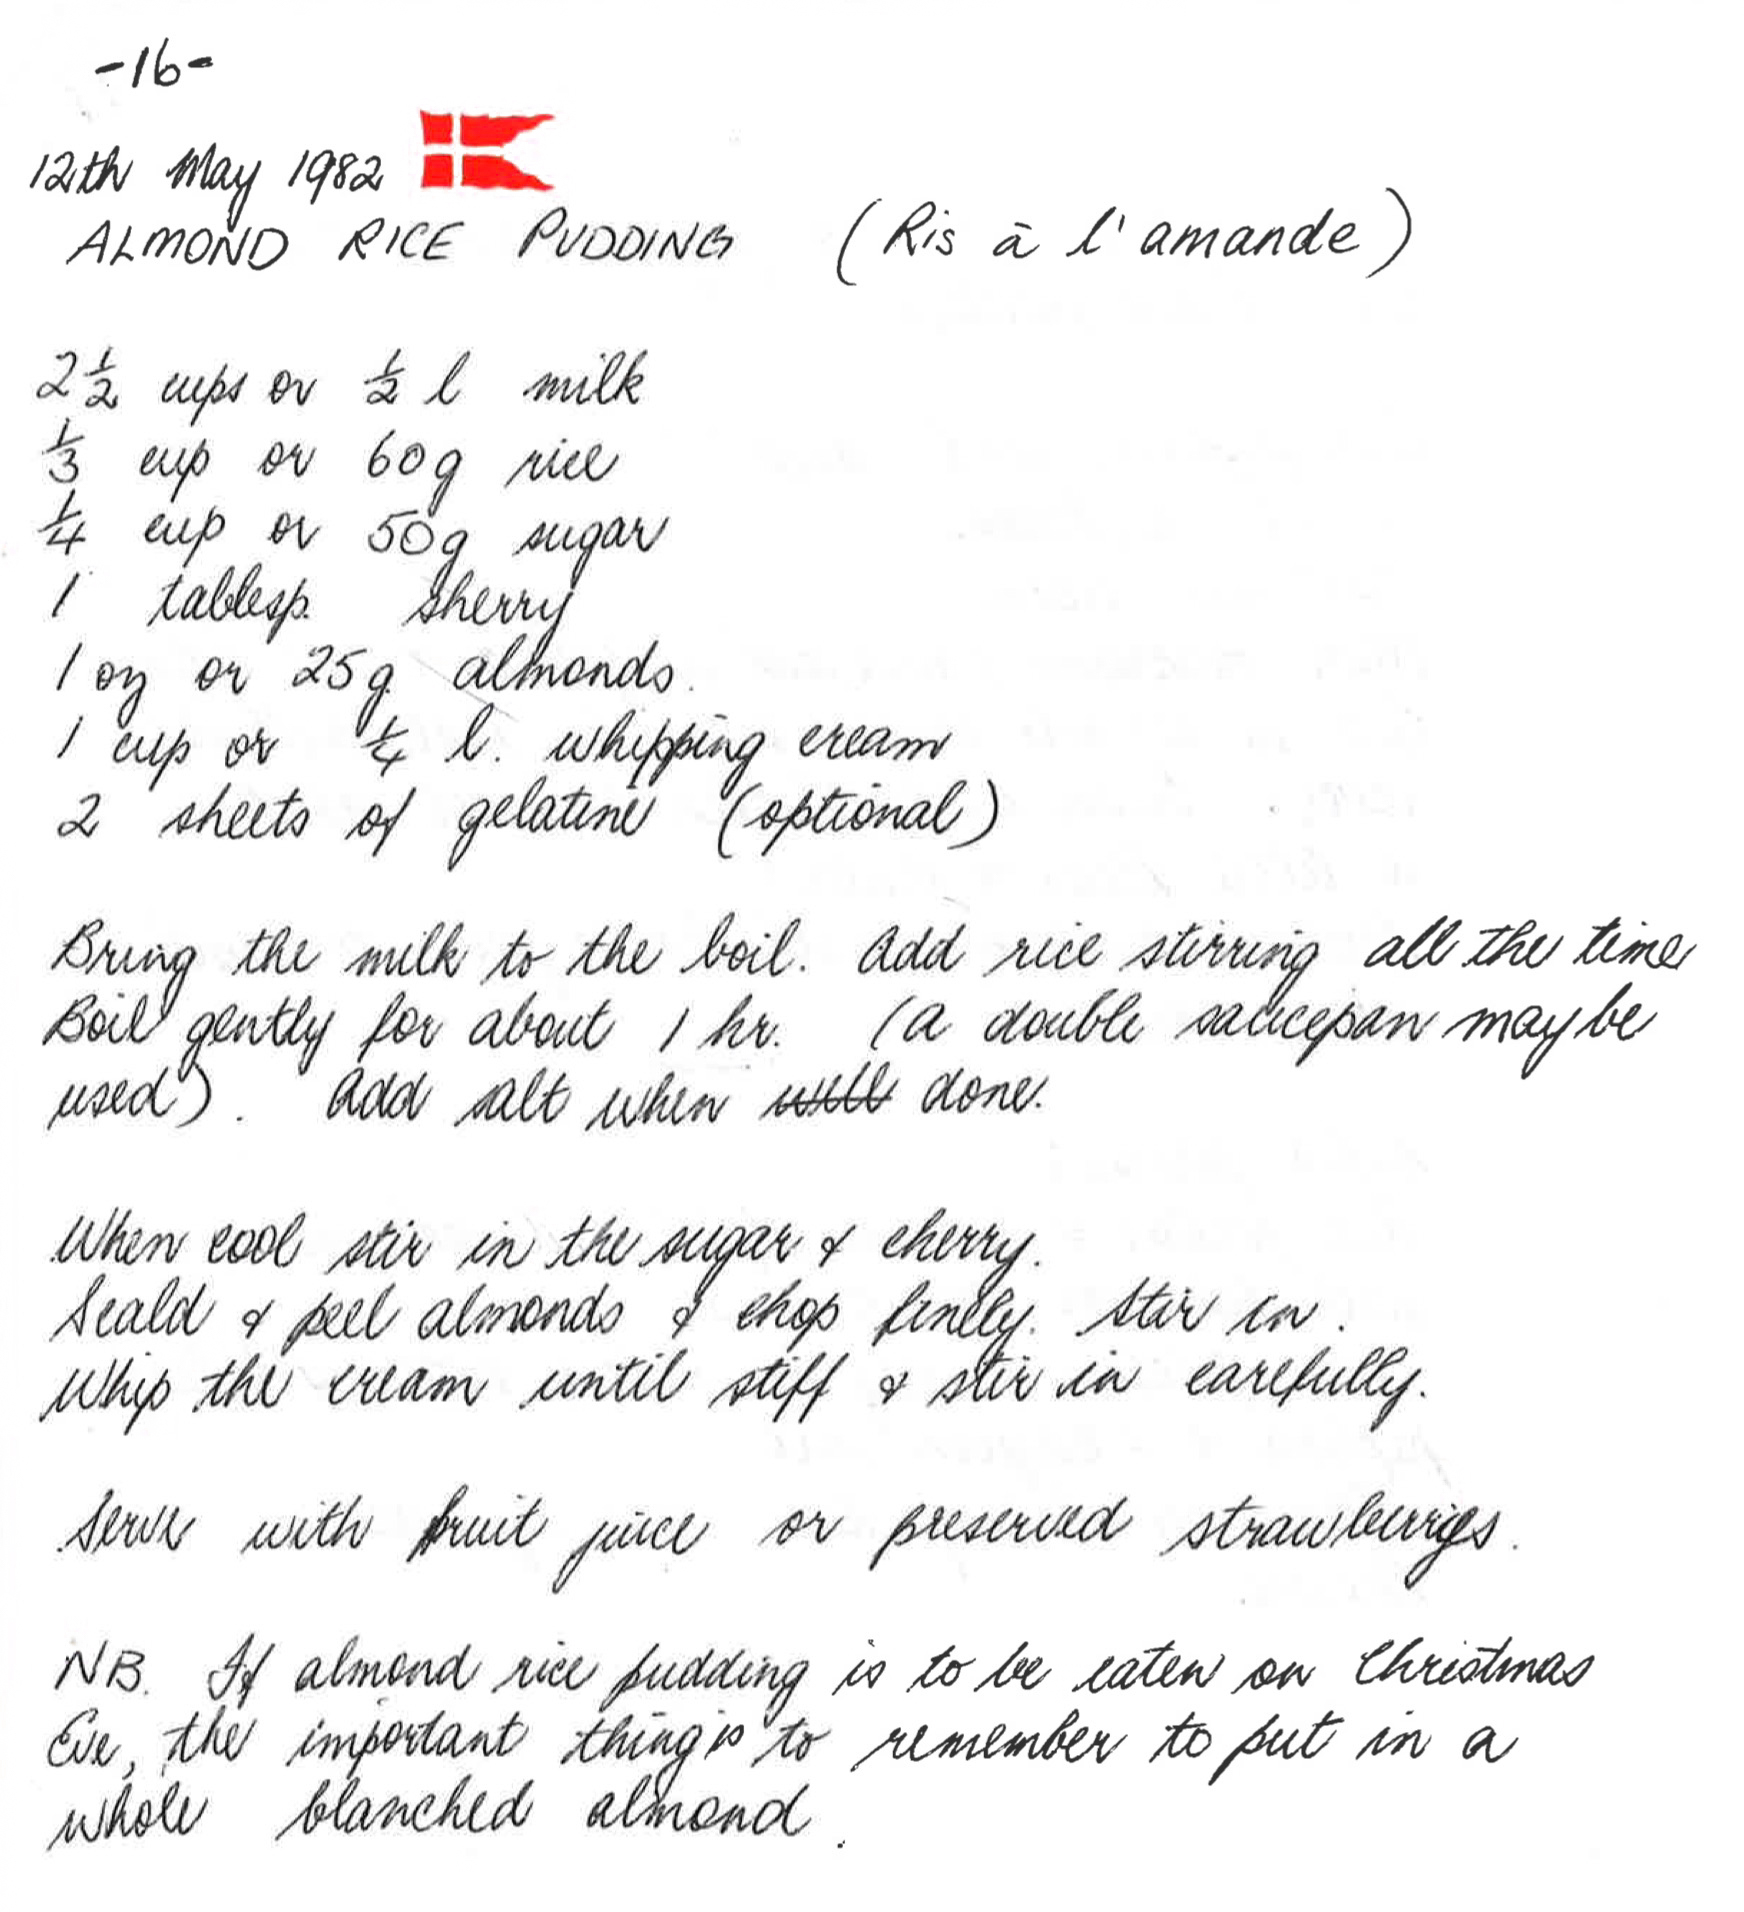 -16-
12th May 1982
ALMOND RICE PUDDING (Ris à l'amande)
2½ cups or ½ l milk
⅓ cup or 60g rice
¼ cup or 50g sugar
1 tablesp. sherry
1 oz or 25g. almonds.
1 cup or ¼ l. whipping cream
2 sheets of gelatine (optional)
Bring the milk to the boil. Add rice stirring all the time
Boil gently for about 1 hr. (a double saucepan may be
used). Add salt when will done.
When cool stir in the sugar & cherry.
Scald & peel almonds & chop finely. Stir in.
Whip the cream until stiff & stir in carefully.
Serve with fruit juice or preserved strawberries.
NB. If almond rice pudding is to be eaten on Christmas
Eve, the important thing is to remember to put in a
whole blanched almond.